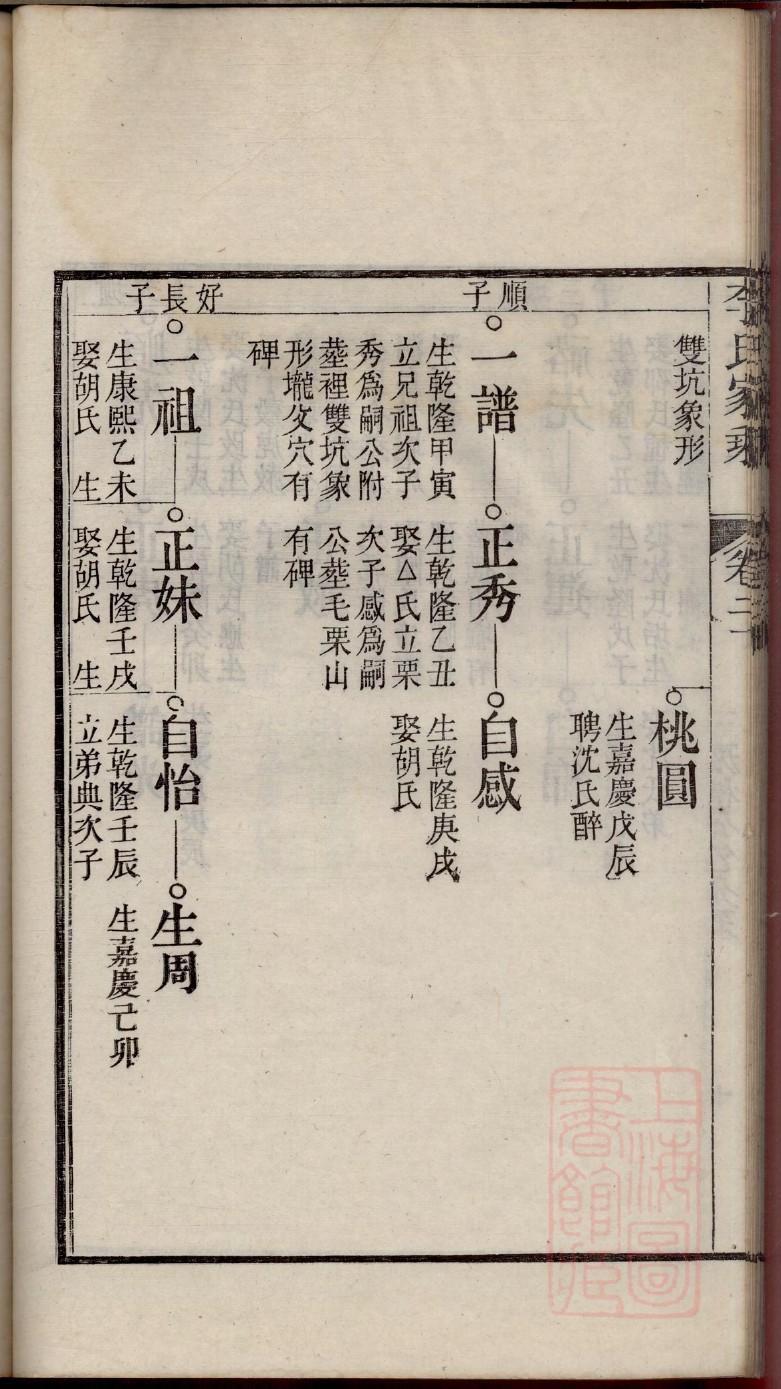 李氏家乘
卷二
雙坑象形
桃圓
生嘉慶戊辰
聘沈氏醉
順子
一譜
生乾隆甲寅
立兄祖次子
秀爲嗣公附
塟裡雙坑象
形壠攵穴有
碑
正秀
生乾隆乙丑
娶△氏立栗
次子感爲嗣
公塟毛栗山
有碑
自感
生乾隆庚戌
娶胡氏
好長子
一祖
生康熙乙未
娶胡氏 生
正妹
生乾隆壬戌
娶胡氏 生
自怡
生乾隆壬辰
立弟典次子
生周
生嘉慶己卯
上海圖
書館藏